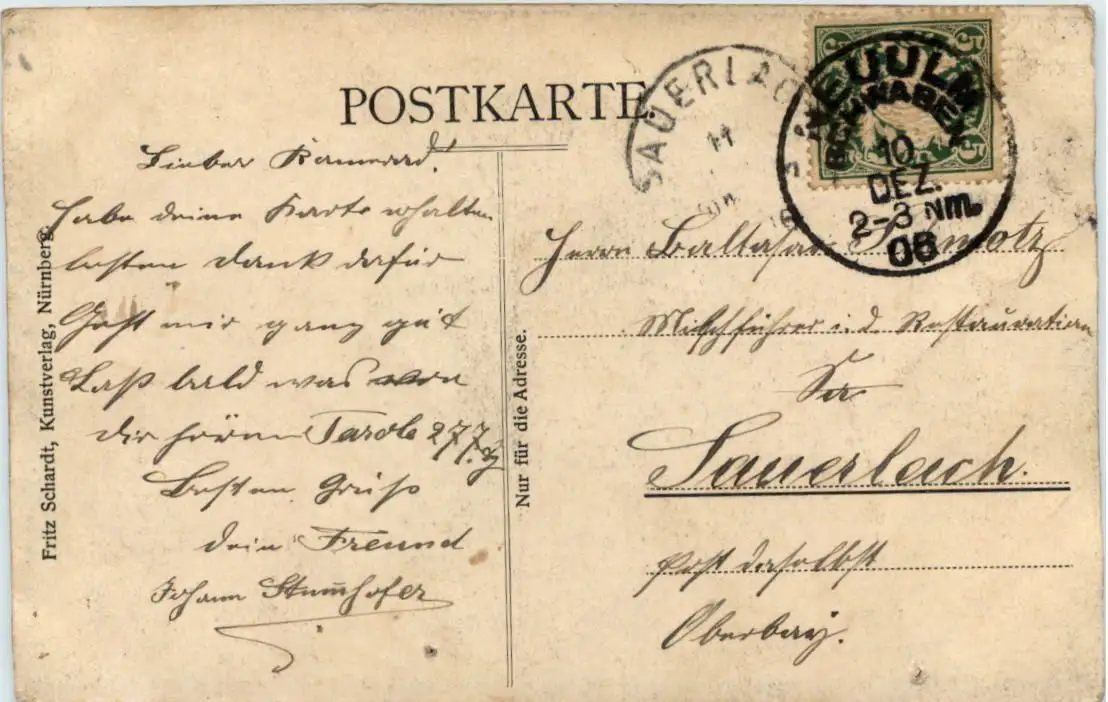 POSTKARTE
Lieber Kamerad!
Habe deine Karte erhalten
besten Dank dafür
Geht mir ganz gut
Laß bald was von
dir hören Parole 277.
Besten Gruß
dein Freund
Johann
Fritz Schardt, Kunstverlag, Nürnberg.
Nur für die Adresse.
SAUERLAC
11
5
5
5
NEUULM
B.SCHWABEN
10.
DEZ.
2-3 Nm.
06
Herrn Baltasar
i. d. Restauration
Sauerlach.
Post daselbst
Oberbay.